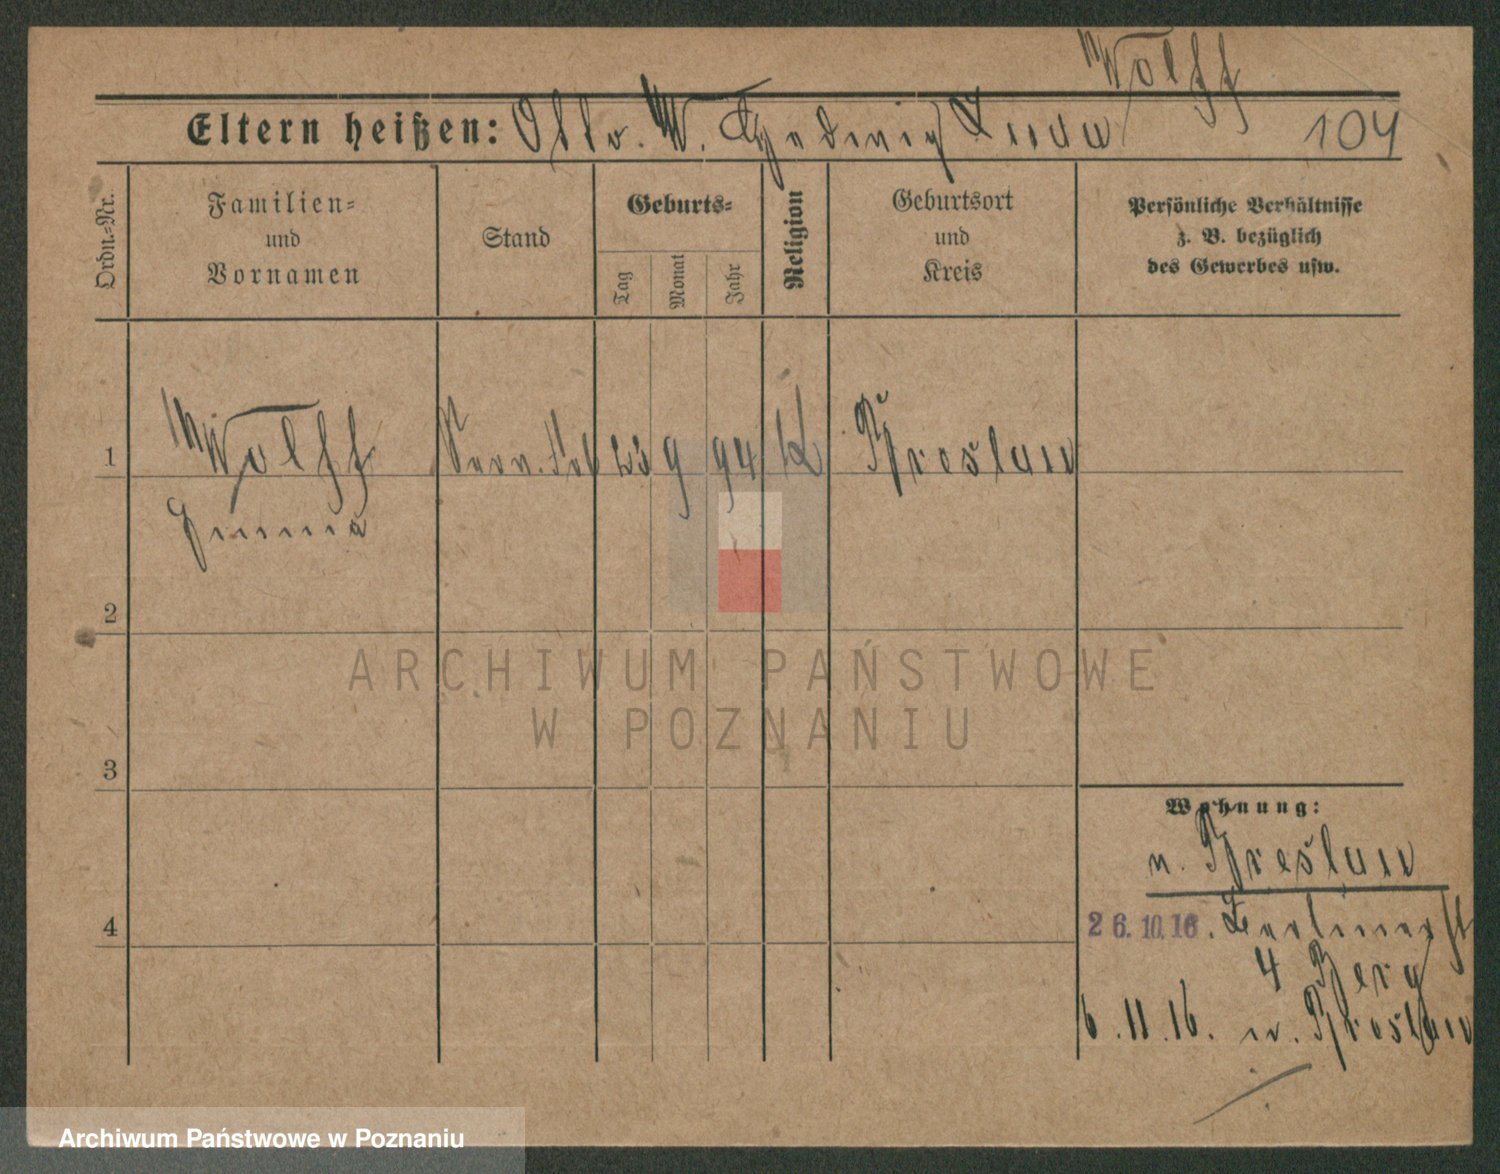 Wolff
Eltern heißen: Otto. W. Hedwig 104
Ordn.-Nr.
Familien-
und
Vornamen
Stand
Geburts-
Tag
Monat
Jahr
Religion
Geburtsort
und
Kreis
Persönliche Verhältnisse
z. B. bezüglich
des Gewerbes usw.
1 Wolff 23 9 94 K Breslau
Emma
2
ARCHIWUM PAŃSTWOWE
W POZNANIU
3
Wohnung:
n. Breslau
4
26.10.16. Berlinerst
4 Berg
6.11.16. n. Breslau
Archiwum Państwowe w Poznaniu